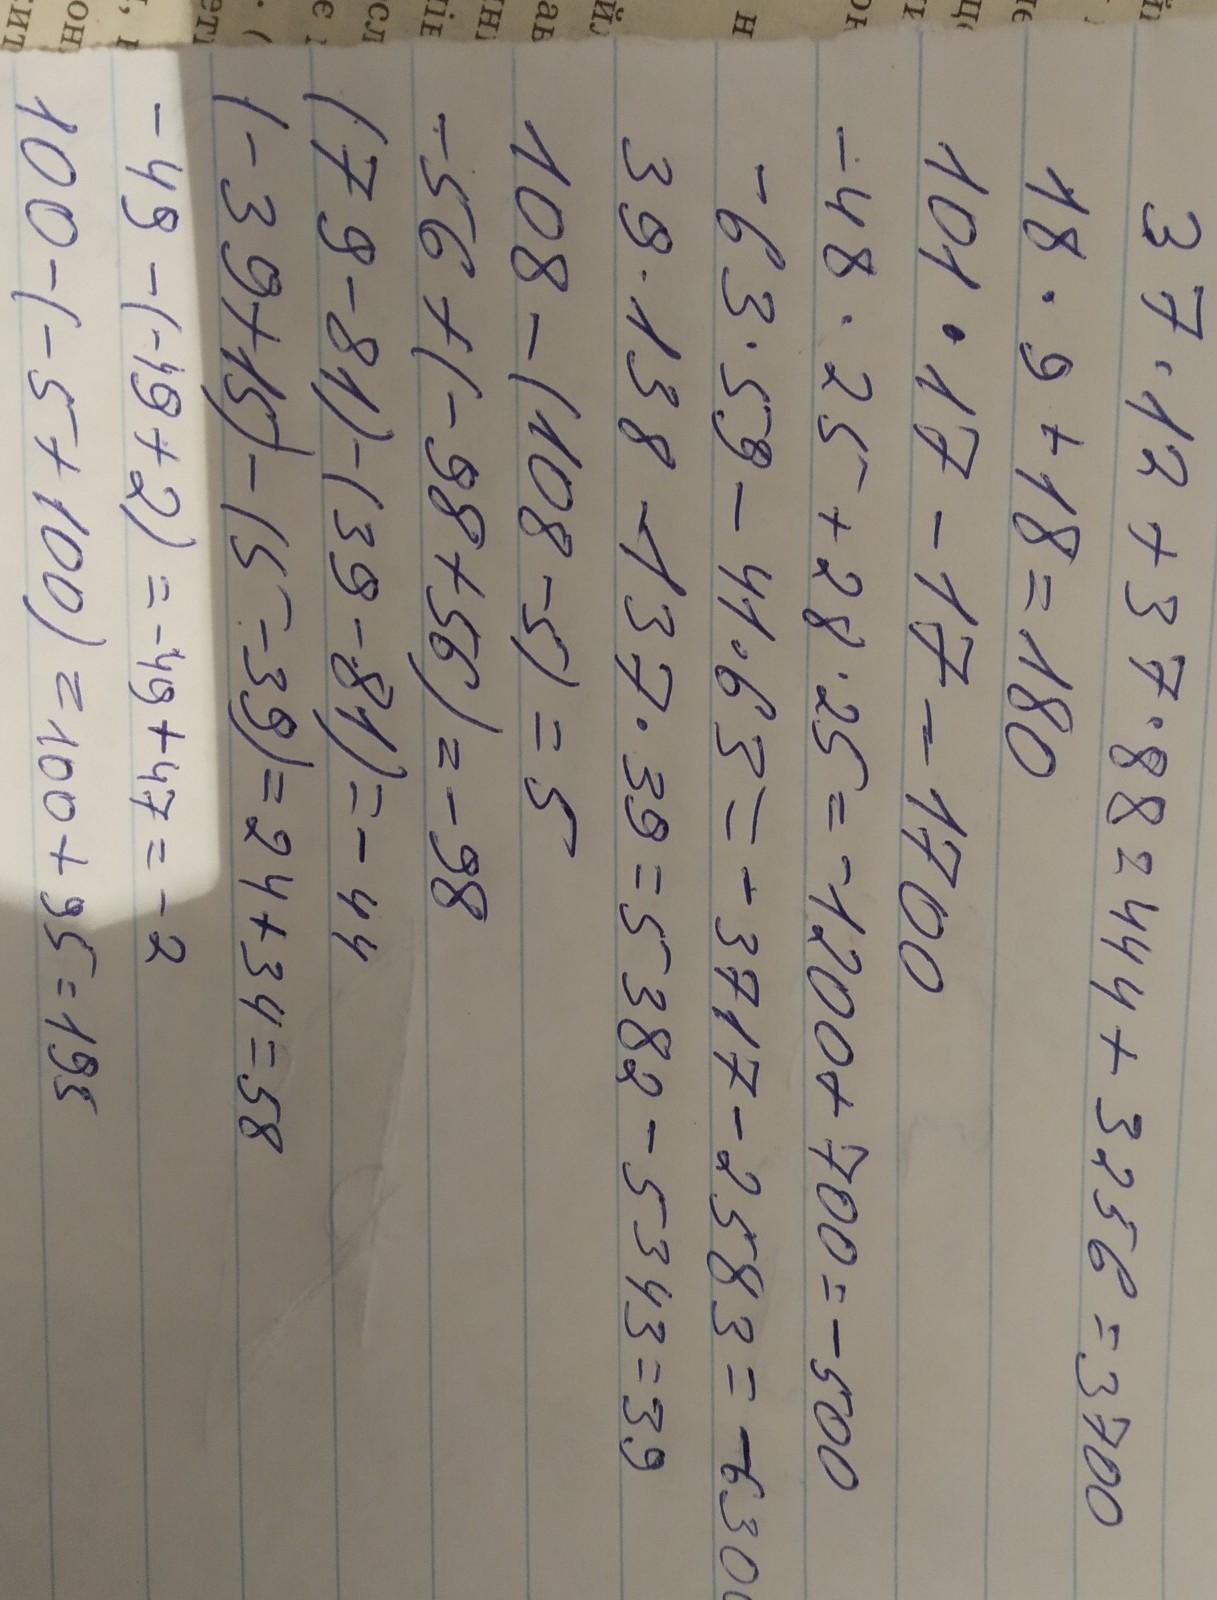 37·12+37·88 444+3256=3700
18·9+18=180
101·17-17=1700
-48·25+28·25=-1200+700=-500
-63·59-41·63=-3717-2583=-630
39·138-137·39=5382-5343=39
108-(108-5)=5
-56+(-98+56)=-98
(79-81)-(39-81)=-44
(-39+15)-(5-39)=24+34=58
-49-(-49+2)=-49+47=-2
100-(-5+100)=100+95=195